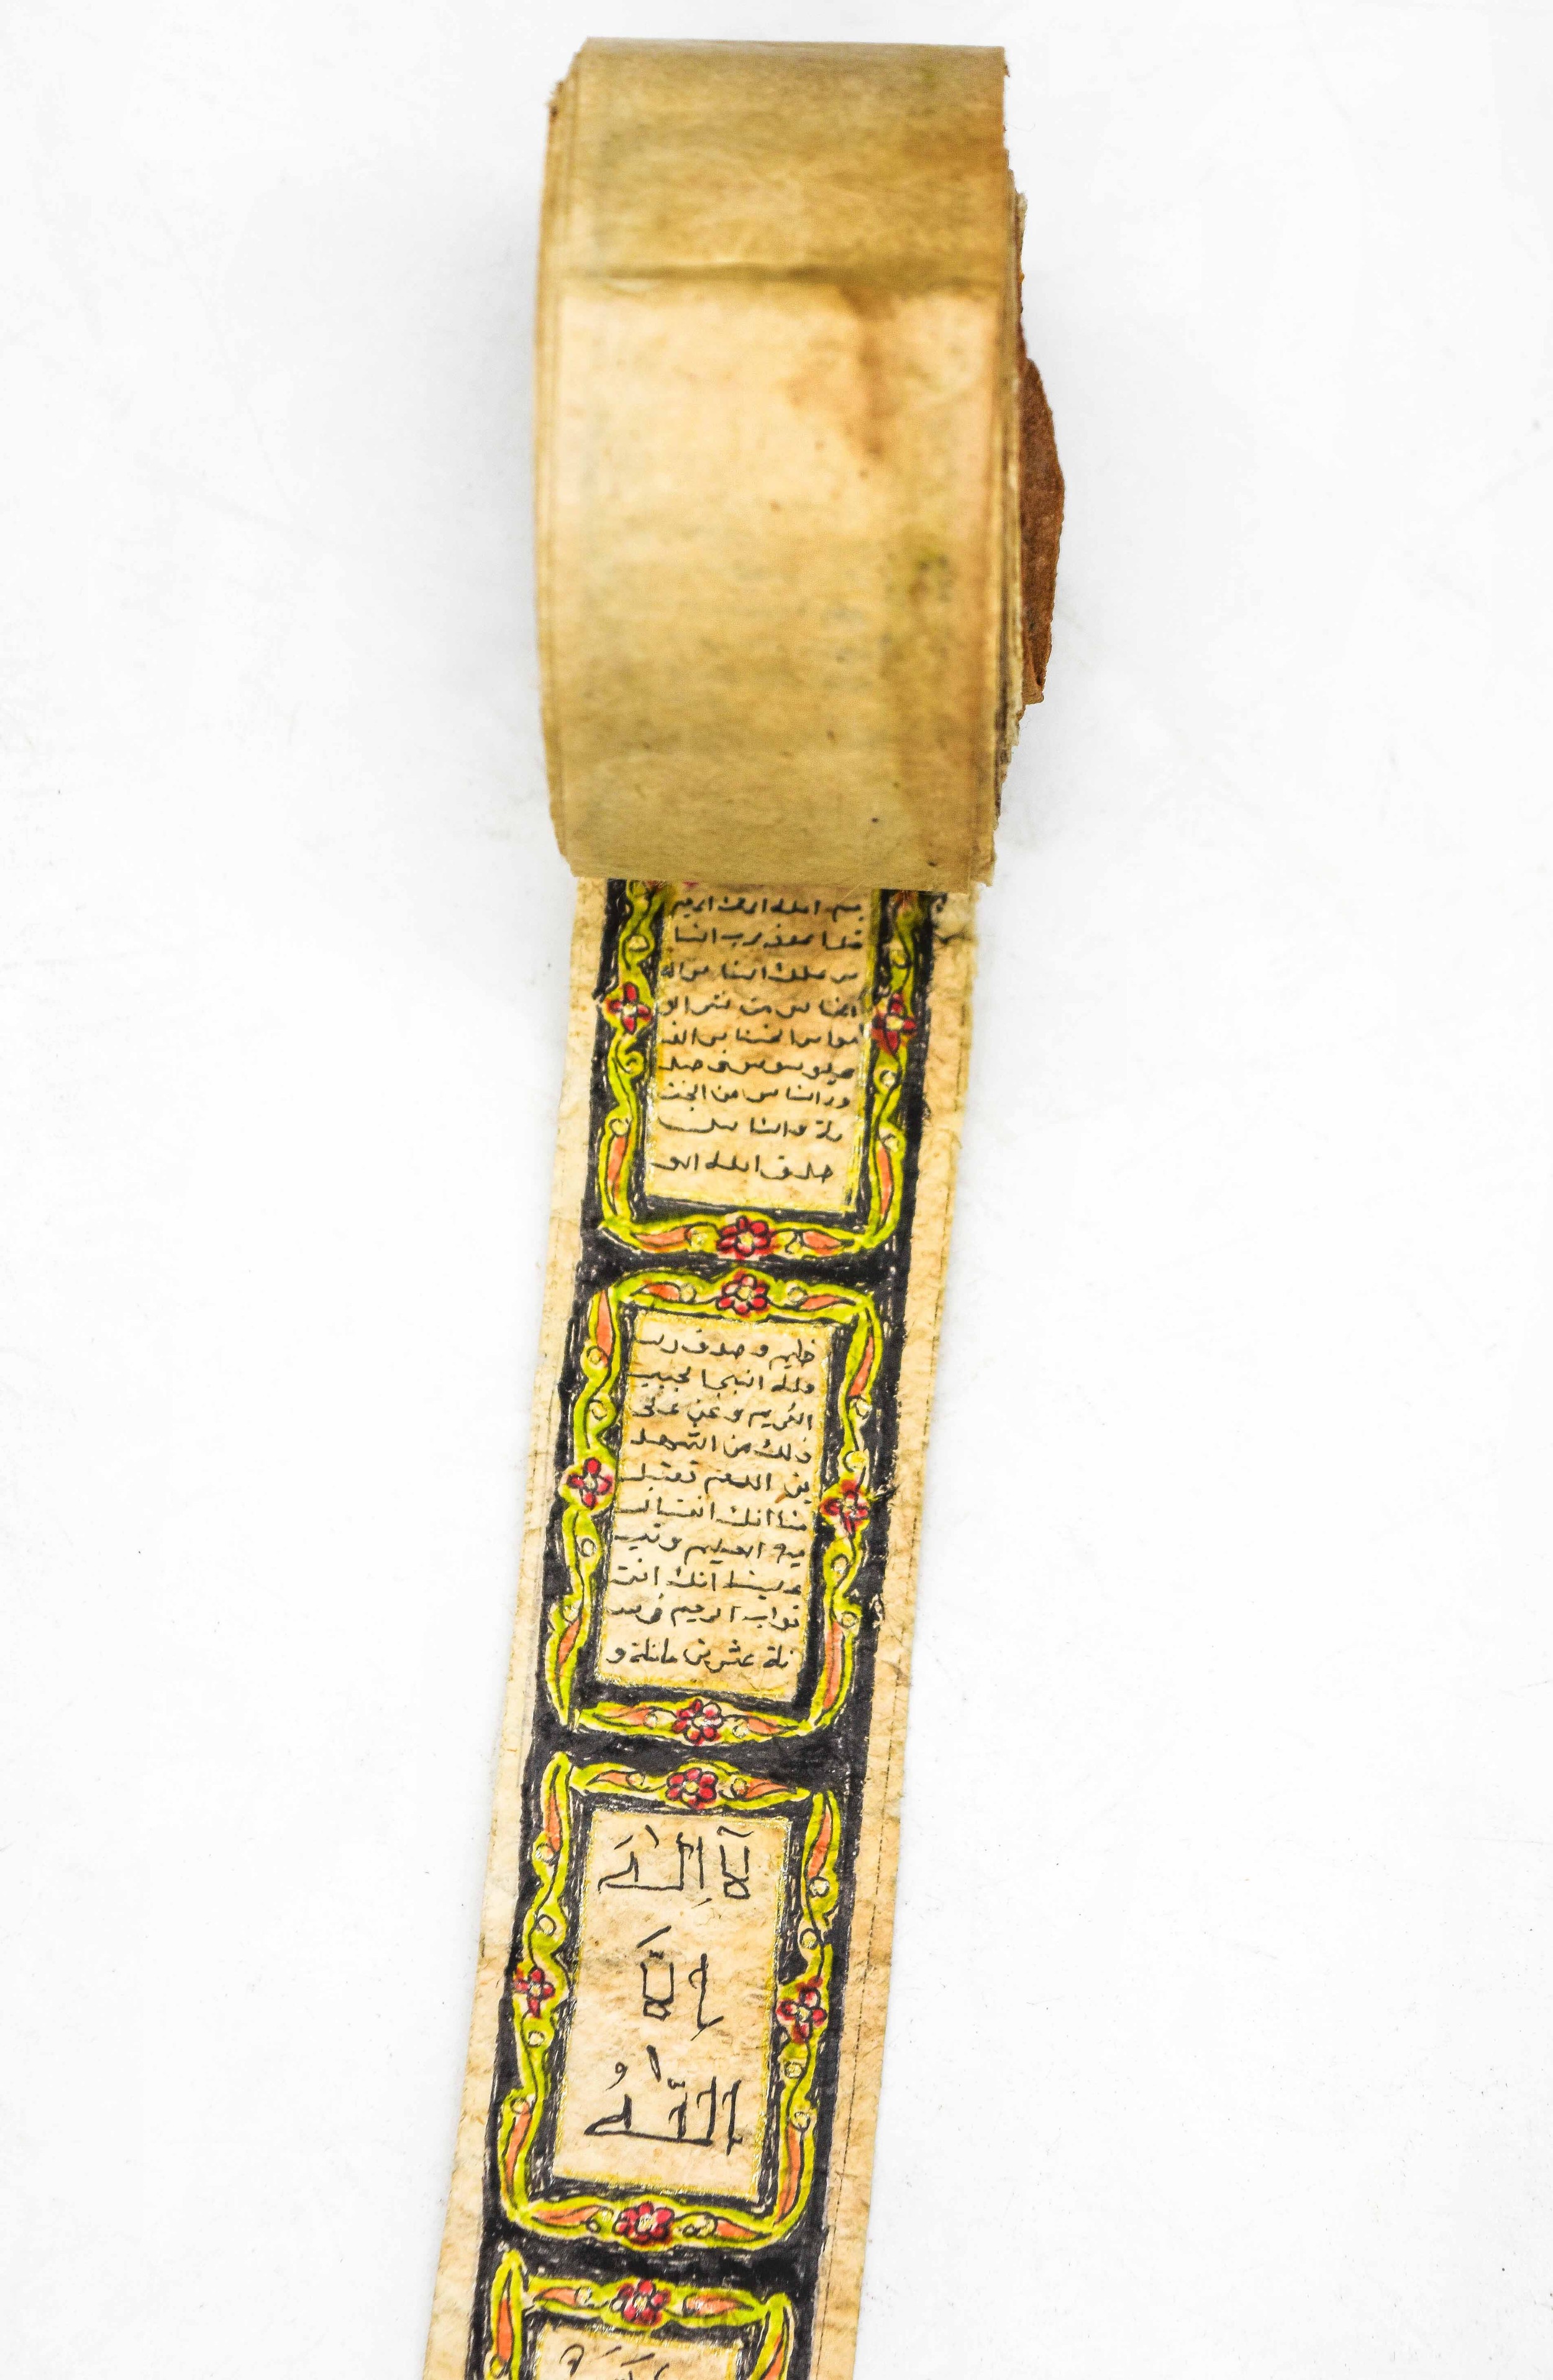 بسم الله الرحمن الرحيم
قل اعوذ برب النا
س ملك الناس اله
الناس من شر الو
سواس الخناس الذ
ي يوسوس في صد
ور الناس من الجنـ
ـة والناس
صدق الله الع
ظيم وصدق رسـ
وله النبي الحبيب
الكريم و على
ذلك من الشهد
ين اللهم تقبل
منا انك انت السـ
ميع العليم وتب
علينا انك انت
تواب الرحيم في سـ
نة عشرين مائة و
لَآ اِلٰهَ
اِلَّا
اللّٰهُ